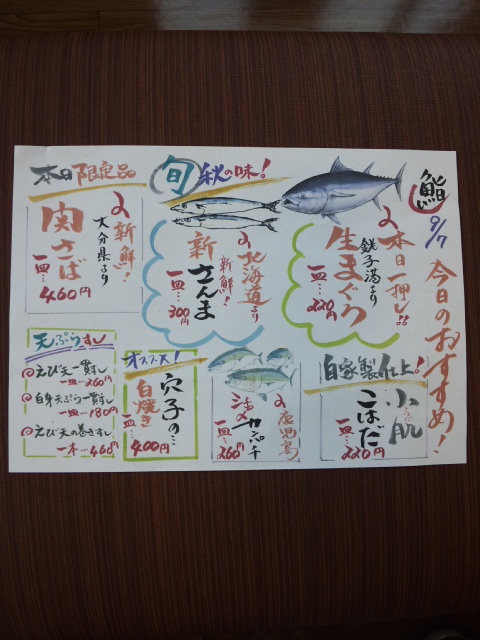 鮨
9/7
今日のおすすめ!
本日一押し品
銚子港より
生まぐろ
一皿…220円
旬 秋の味!
北海道より
新鮮!
新さんま
一皿…300円
本日限定品
新鮮!
大分県より
関さば
一皿…460円
自家製仕上!
小肌
こはだ
一皿…220円
鹿児島
活〆カンパチ
一皿…260円
オススメ!
穴子の…
白焼き
一皿…400円
天ぷらすし
えび天一貫すし
一皿…260円
白身天ぷら一貫すし
一皿…180円
えび天の巻きすし
一本…468円